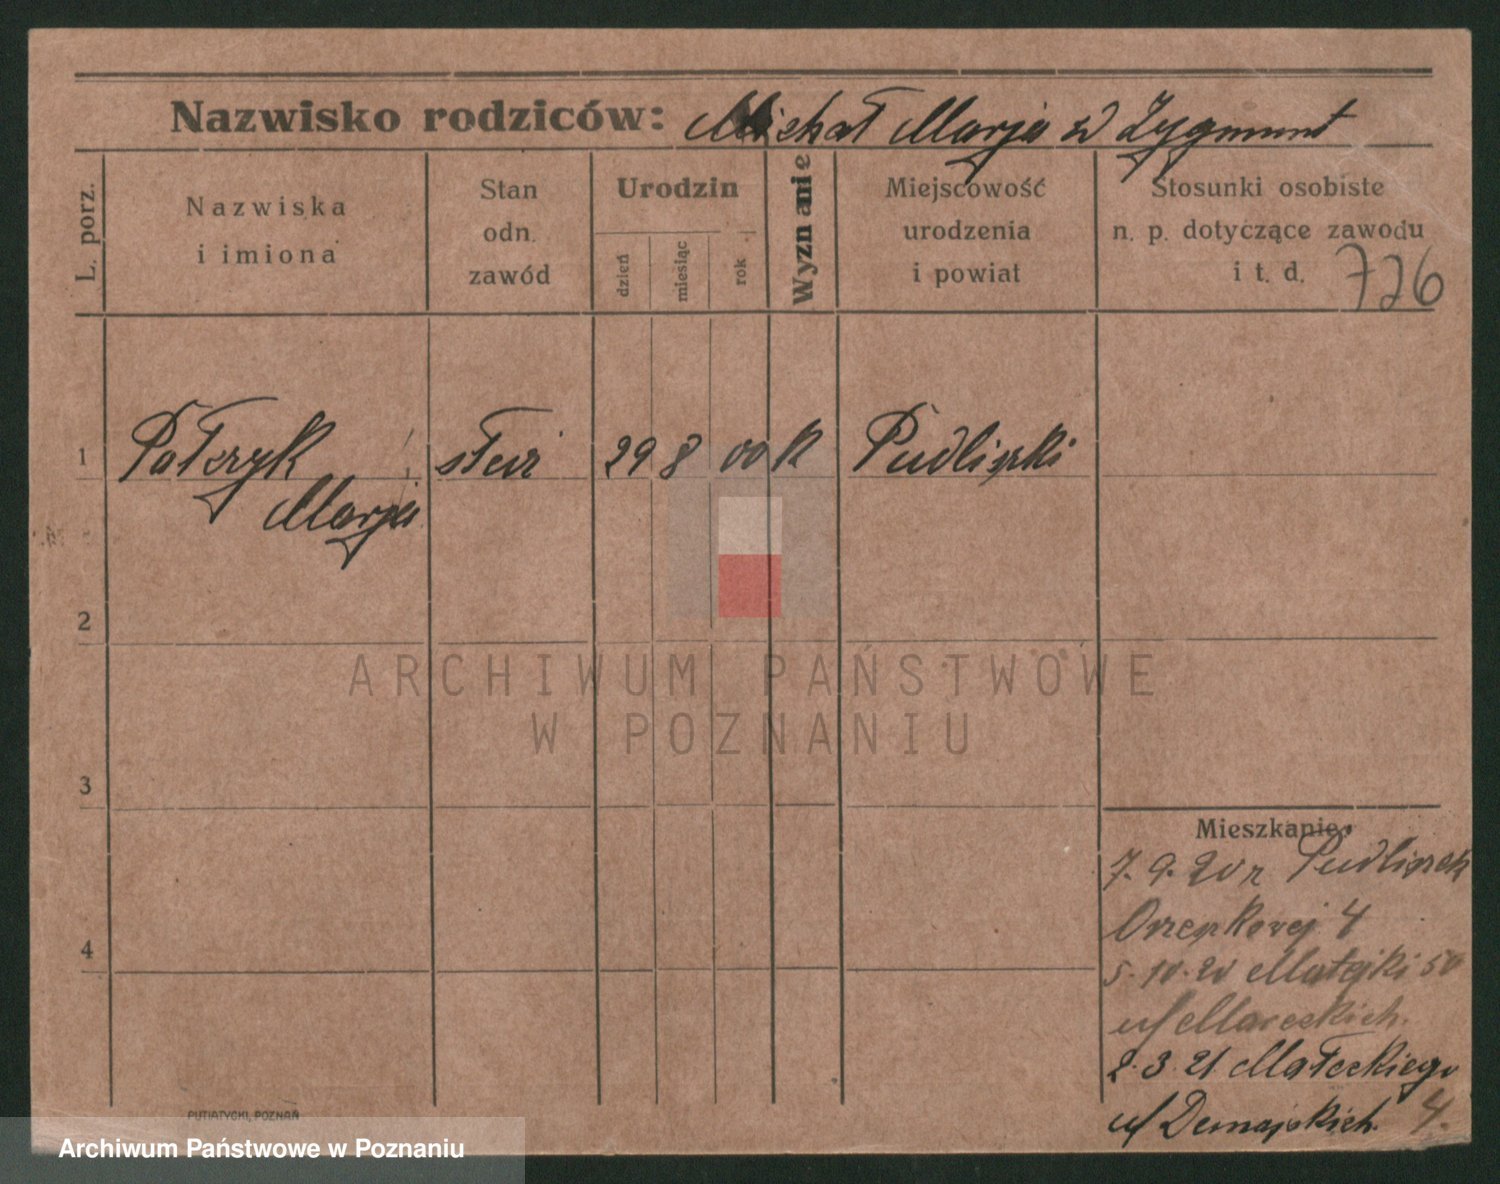 Nazwisko rodziców: Michał Marja z Zygmunt
L. porz.
Nazwiska
i imiona
Stan
odn.
zawód
Urodzin
dzień
miesiąc
rok
Wyznanie
Miejscowość
urodzenia
i powiat
Stosunki osobiste
n. p. dotyczące zawodu
i t. d.
726
1 Patrzyk służ 29 8 00 k Pudliszki
Marja
2
3
4
Mieszkanie:
7. 9. 20 z Pudliszek
Orzeszkowej 4
5. 10. 20 Matejki 50
u/
2. 3. 21 Małeckiego
u/ 4.
PUTIATYCKI, POZNAŃ
ARCHIWUM PAŃSTWOWE
W POZNANIU
Archiwum Państwowe w Poznaniu